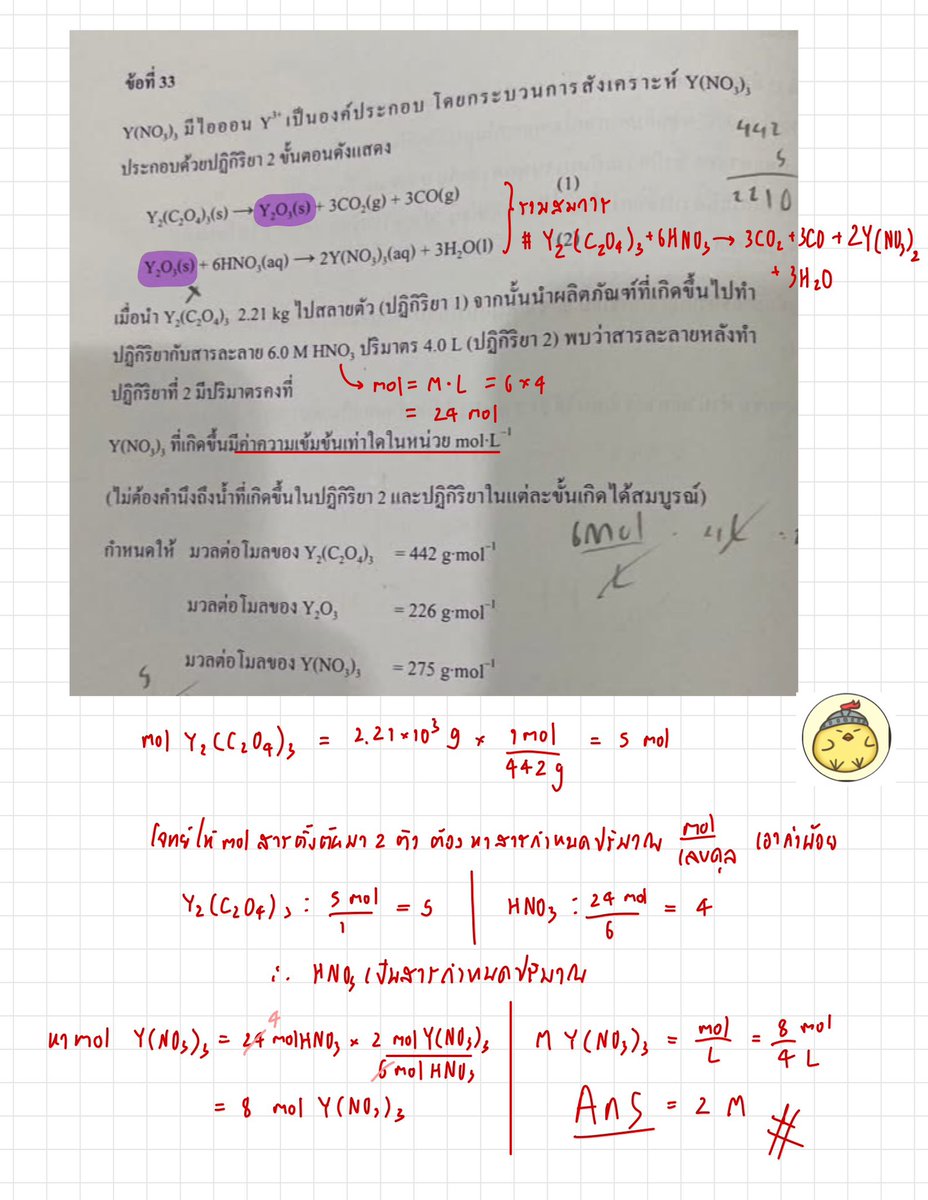 ข้อที่ 33
Y(NO₃)₃ มีไอออน Y³⁺ เป็นองค์ประกอบ โดยกระบวนการสังเคราะห์ Y(NO₃)₃
ประกอบด้วยปฏิกิริยา 2 ขั้นตอนดังแสดง
442
5
2210
Y₂(C₂O₄)₃(s) → Y₂O₃(s) + 3CO₂(g) + 3CO(g) (1)
รวมสมการ
Y₂O₃(s) + 6HNO₃(aq) → 2Y(NO₃)₃(aq) + 3H₂O(l) (2)
# Y₂(C₂O₄)₃ + 6HNO₃ → 3CO₂ + 3CO + 2Y(NO₃)₂
+ 3H₂O
เมื่อนำ Y₂(C₂O₄)₃ 2.21 kg ไปสลายตัว (ปฏิกิริยา 1) จากนั้นนำผลิตภัณฑ์ที่เกิดขึ้นไปทำ
ปฏิกิริยากับสารละลาย 6.0 M HNO₃ ปริมาตร 4.0 L (ปฏิกิริยา 2) พบว่าสารละลายหลังทำ
ปฏิกิริยาที่ 2 มีปริมาตรคงที่
mol = M · L = 6 × 4
= 24 mol
Y(NO₃)₃ ที่เกิดขึ้นมีค่าความเข้มข้นเท่าใดในหน่วย mol·L⁻¹
(ไม่ต้องคำนึงถึงน้ำที่เกิดขึ้นในปฏิกิริยา 2 และปฏิกิริยาในแต่ละขั้นเกิดได้สมบูรณ์)
กำหนดให้ มวลต่อโมลของ Y₂(C₂O₄)₃ = 442 g·mol⁻¹
6mol/L · 4L =
มวลต่อโมลของ Y₂O₃ = 226 g·mol⁻¹
มวลต่อโมลของ Y(NO₃)₃ = 275 g·mol⁻¹
5
mol Y₂(C₂O₄)₃ = 2.21×10³ g × 1mol/442g = 5 mol
โจทย์ให้ mol สารตั้งต้นมา 2 ตัว ต้องหาสารกำหนดปริมาณ mol/เลขดุล เอาค่าน้อย
Y₂(C₂O₄)₃ : 5 mol/1 = 5 | HNO₃ : 24 mol/6 = 4
∴ HNO₃ เป็นสารกำหนดปริมาณ
4
หา mol Y(NO₃)₃ = 24 mol HNO₃ × 2 mol Y(NO₃)₃/6 mol HNO₃
= 8 mol Y(NO₃)₃
M Y(NO₃)₃ = mol/L = 8 mol/4 L
Ans = 2 M #